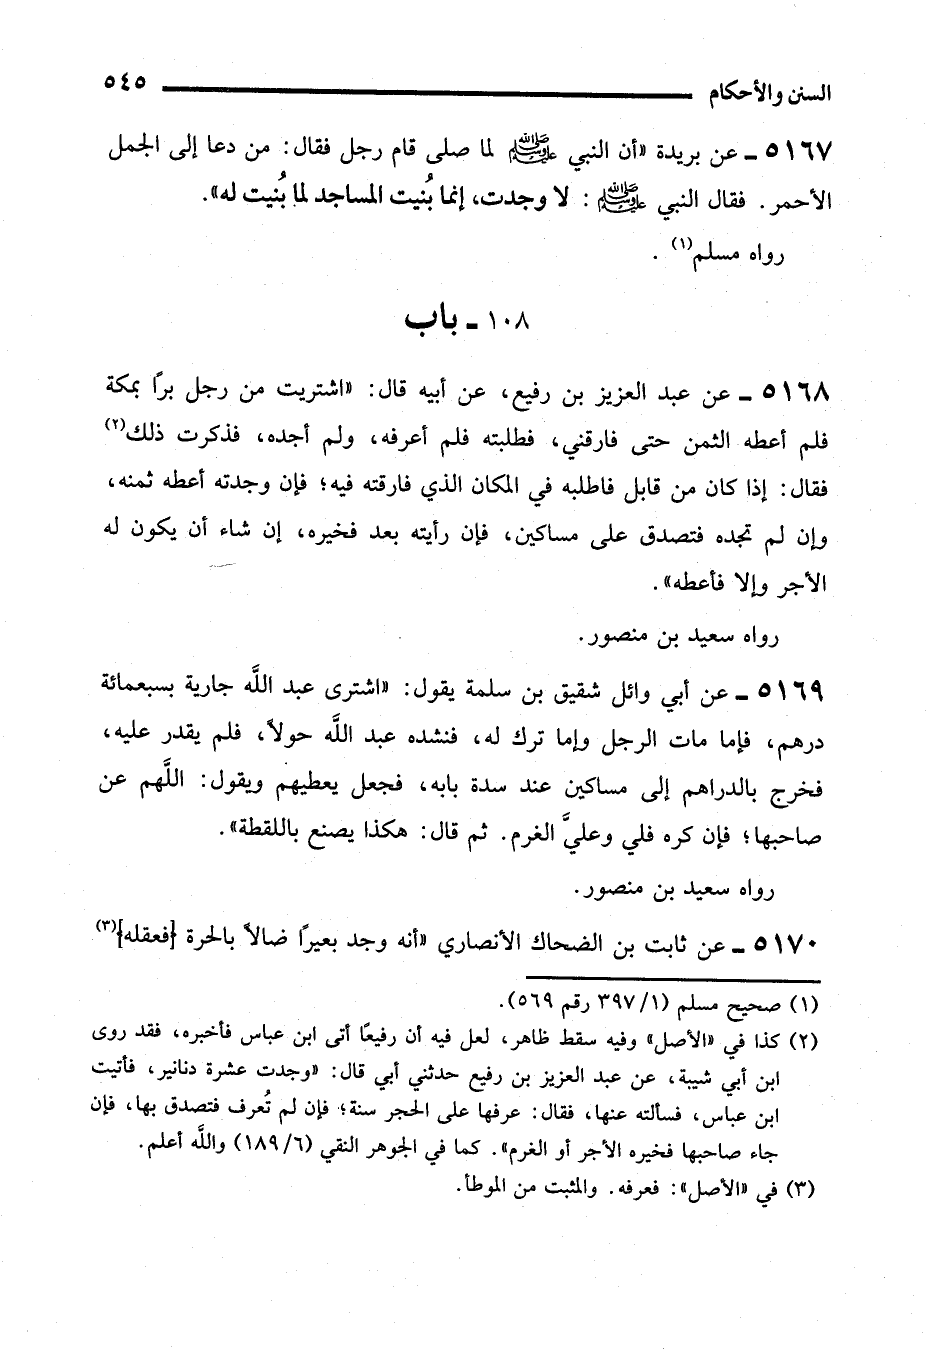 السنن والأحكام ٥٤٥
٥١٦٧ ـ عن بريدة «أن النبي ﷺ لما صلى قام رجل فقال: من دعا إلى الجمل
الأحمر. فقال النبي ﷺ: لا وجدت، إنما بُنيت المساجد لما بُنيت له».
رواه مسلم(١).
١٠٨ ـ باب
٥١٦٨ ـ عن عبد العزيز بن رفيع، عن أبيه قال: «اشتريت من رجل برًا بمكة
فلم أعطه الثمن حتى فارقني، فطلبته فلم أعرفه، ولم أجده، فذكرت ذلك(٢)
فقال: إذا كان من قابل فاطلبه في المكان الذي فارقته فيه؛ فإن وجدته أعطه ثمنه،
وإن لم تجده فتصدق على مساكين، فإن رأيته بعد فخيره، إن شاء أن يكون له
الأجر وإلا فأعطه».
رواه سعيد بن منصور.
٥١٦٩ ـ عن أبي وائل شقيق بن سلمة يقول: «اشترى عبد اللَّه جارية بسبعمائة
درهم، فإما مات الرجل وإما ترك له، فنشده عبد اللَّه حولاً، فلم يقدر عليه،
فخرج بالدراهم إلى مساكين عند سدة بابه، فجعل يعطيهم ويقول: اللَّهم عن
صاحبها؛ فإن كره فلي وعليَّ الغرم. ثم قال: هكذا يصنع باللقطة».
رواه سعيد بن منصور.
٥١٧٠ ـ عن ثابت بن الضحاك الأنصاري «أنه وجد بعيرًا ضالاً بالحرة {فعقله}(٣)
(١) صحيح مسلم (١/ ٣٩٧ رقم ٥٦٩).
(٢) كذا في «الأصل» وفيه سقط ظاهر، لعل فيه أن رفيعًا أتى ابن عباس فأخبره، فقد روى
ابن أبي شيبة، عن عبد العزيز بن رفيع حدثني أبي قال: «وجدت عشرة دنانير، فأتيت
ابن عباس، فسألته عنها، فقال: عرفها على الحجر سنة؛ فإن لم تُعرف فتصدق بها، فإن
جاء صاحبها فخيره الأجر أو الغرم». كما في الجوهر النقي (٦/ ١٨٩) واللَّه أعلم.
(٣) في «الأصل»: فعرفه. والمثبت من الموطأ.